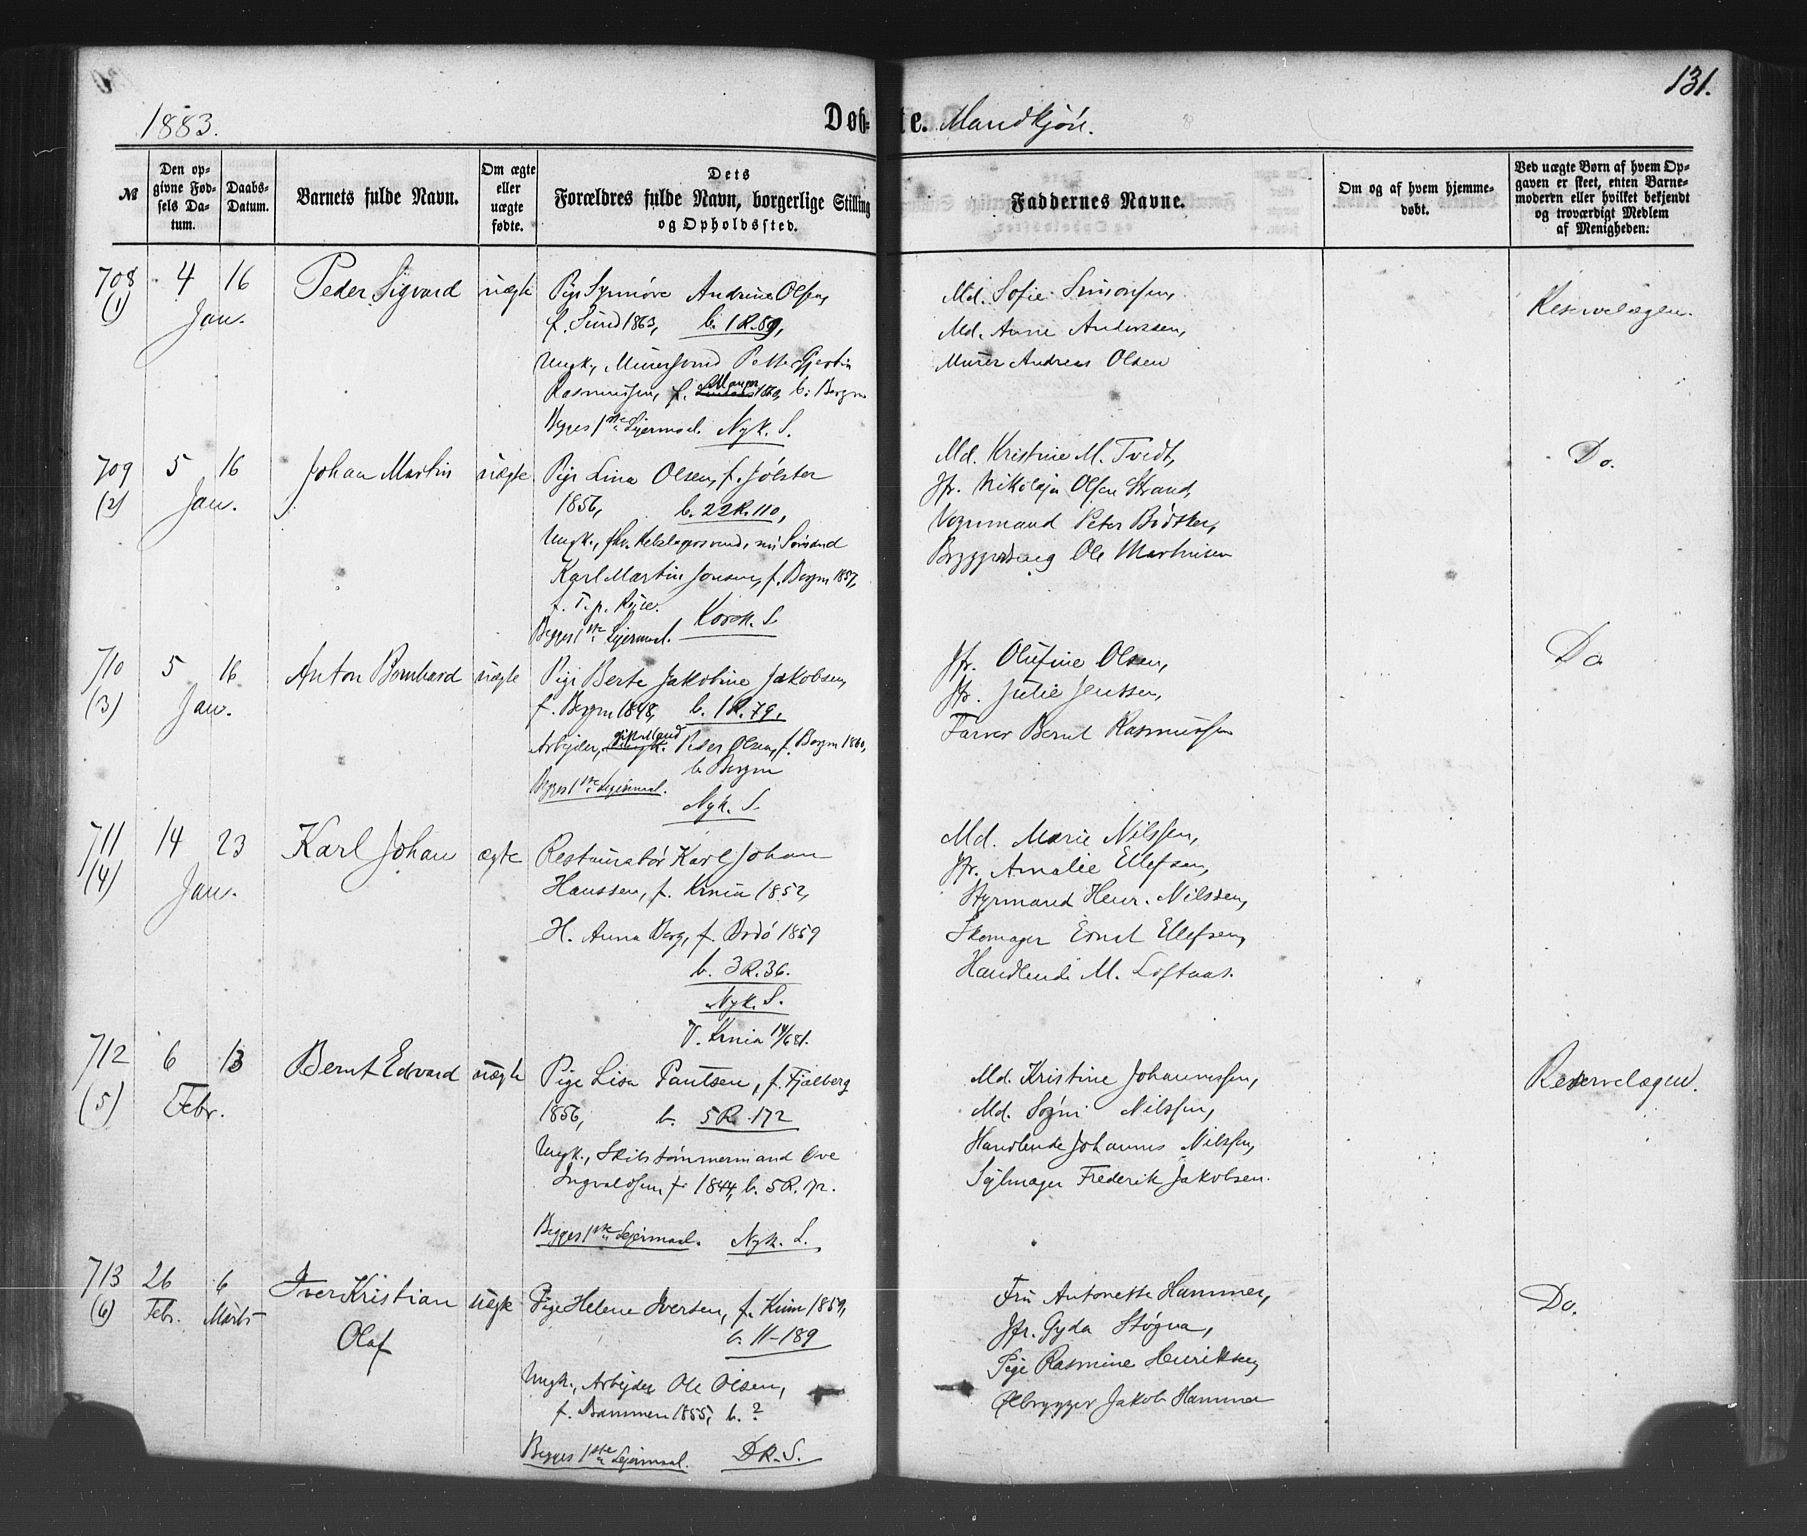 131.
1883.
Døbte. Mandkjön.
№
Den opgivne Fødsels Datum.
Daabs-Datum.
Barnets fulde Navn.
Om ægte eller uægte fødte.
Dets Forældres fulde Navn, borgerlige Stilling og Opholdssted.
Faddernes Navne.
Om og af hvem hjemmedøbt.
Ved uægte Børn af hvem Opgaven er skeet, enten Barnemoderen eller hvilket bekjendt og troværdigt Medlem af Menigheden:
708 (1) 4 16 Jan.
Peder Sigvard uægte
Pige Synnöve Andrine Olsen,
f. Sund 1863, b. 1 R. 59,
Ungk, Muursvend Gjertin
Rasmussen, f. Manger 1860, b. Bergen
Begges 1ste Lejermaal. Nyk. S.
Md. Sofie Simonsen,
Md. Anne Anderssen,
Murer Andreas Olsen
Reservelægen.
709 (2) 5 16 Jan.
Johan Martin uægte
Pige Lina Olsen, f. Jölster
1856, b. 22 R. 110,
Ungk., nu Sömand
Karl Martin Jonsen, f. Bergen 1857,
f. T. p. Rejse.
Begges 1ste Lejermaal. Korsk. S.
Md. Kristine M. Tvedt,
Jfr. Nikolaja Olsen Strand,
Vognmand Peter Bödtker,
Ole Martinsen
Do.
710 (3) 5 16 Jan.
Anton Bernhard uægte
Pige Berte Jakobine Jakobsen,
f. Bergen 1848, b. 1 R. 79,
Arbejder, Peder Olsen, f. Bergen 1860,
b. Bergen
Begges 1ste Lejermaal.
Nyk. S.
Jfr. Olufine Olsen,
Jfr. Julie Jenssen,
Farver Bernt Rasmussen
Do
711 (4) 14 23 Jan.
Karl Johan ægte
Restauratör Karl Johan
Hanssen, f. Krnia 1852,
H. Anna Berg, f. Bodö 1859
b. 3 R. 36.
Nyk. S.
V. Krnia 14/6 81.
Md. Marie Nilssen,
Jfr. Amalie Ellefsen,
Styrmand Henr. Nilssen,
Skomager Ernst Ellefsen,
Handlende M. Loftaas.
712 (5) 6 13 Febr.
Bernt Edvard uægte
Pige Lisa Pautsen, f. Fjælberg
1856, b. 5 R. 172
Ungk., Skibstömmermand Ove
Ingvaldsen f. 1844, b. 5 R. 172.
Begges 1ste Lejermaal. Nyk. S.
Md. Kristine Johannessen,
Md. Nilssen,
Handlende Johannes Nilssen,
Sejlmager Frederik Jakobsen.
Reservelægen.
713 (6) 26 Febr. 6 Marts
Iver Kristian uægte
Olaf
Pige Helene Iversen, f. Kinn 1859,
b. 11-189
Ungk., Arbejder Ole Olsen,
f. Brammen 1855, b. ?
Begges 1ste Lejermaal. DK. S.
Fru Antonette Hammer,
Jfr. Gyda Stögva,
Pige Rasmine Henriksen,
Ölbrygger Jakob Hammer
Do.